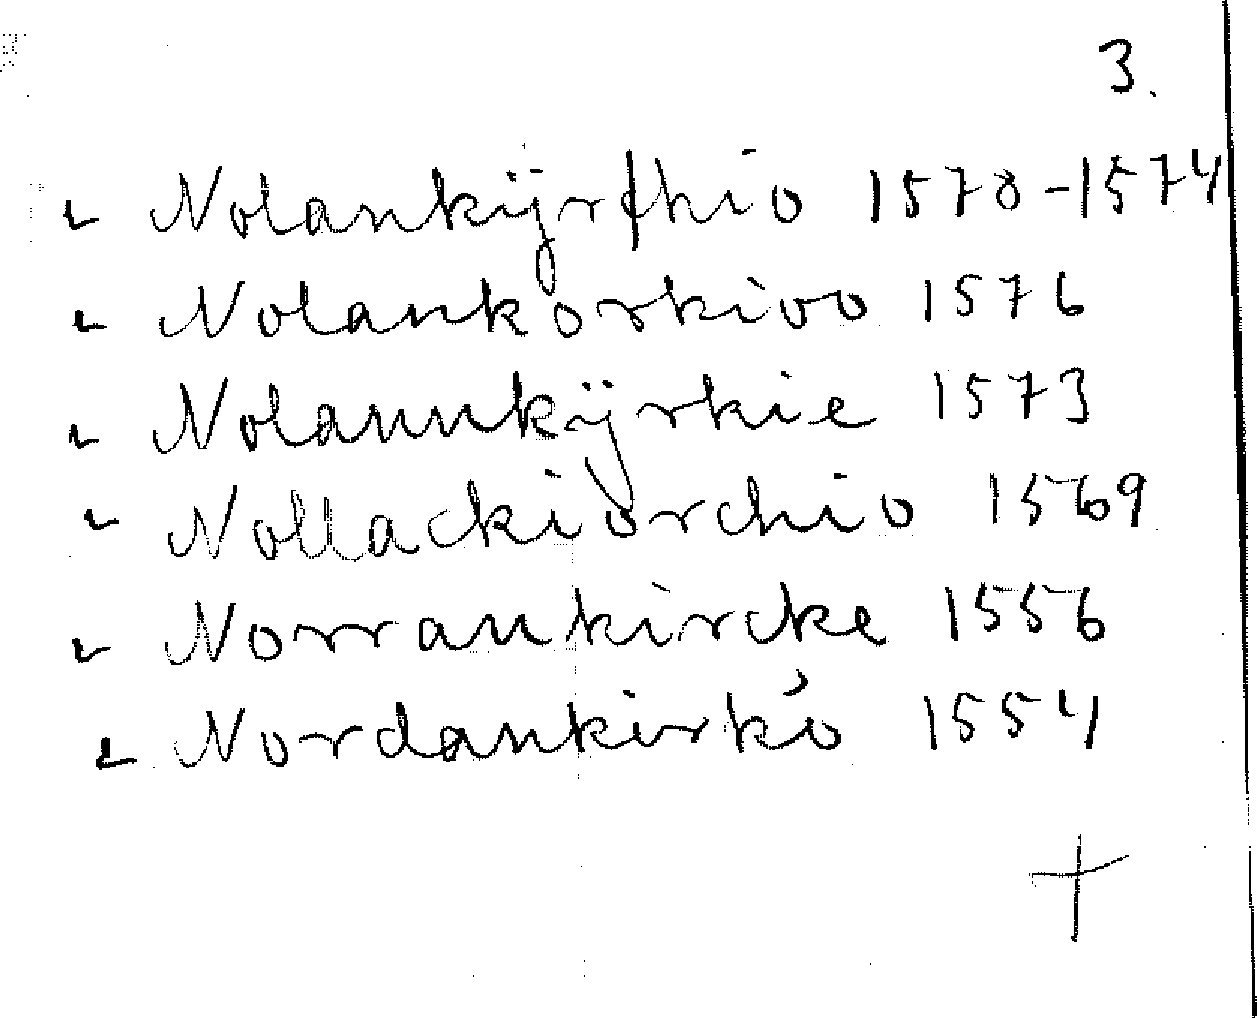 3.
Nolankÿrfhio 1570-1574
Nolankorkivo 1576
Nolannkÿrkie 1573
Nollackiorchio 1569
Norrankircke 1556
Nordankirkó 1554